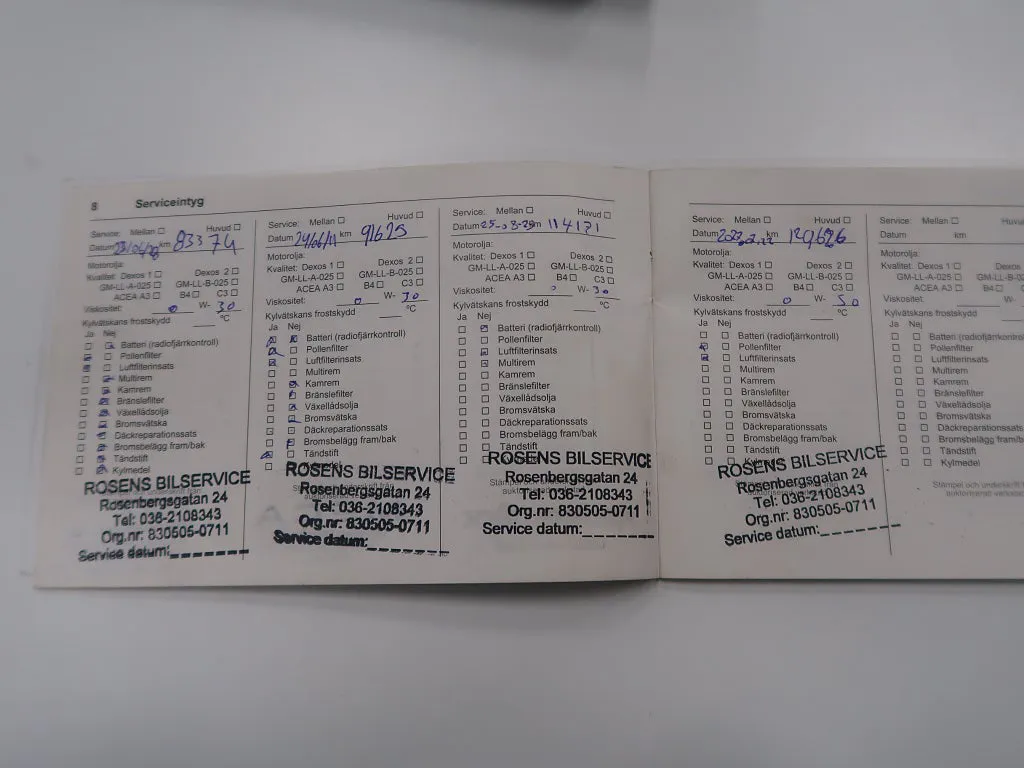 8 Serviceintyg
Service: Mellan ☐ Huvud ☐
Datum km 83374
Motorolja:
Kvalitet: Dexos 1 ☐ Dexos 2 ☐
GM-LL-A-025 ☐ GM-LL-B-025 ☐
ACEA A3 ☐ B4 ☐ C3 ☐
Viskositet: 0 W- 30
Kylvätskans frostskydd °C
Ja Nej
Batteri (radiofjärrkontroll)
Pollenfilter
Luftfilterinsats
Multirem
Kamrem
Bränslefilter
Växellådsolja
Bromsvätska
Däckreparationssats
Bromsbelägg fram/bak
Tändstift
Kylmedel
ROSENS BILSERVICE
Rosenbergsgatan 24
Tel: 036-2108343
Org.nr: 830505-0711
Service datum:
Service: Mellan ☐ Huvud ☐
Datum 24/06/11 km 91625
Motorolja:
Kvalitet: Dexos 1 ☐ Dexos 2 ☐
GM-LL-A-025 ☐ GM-LL-B-025 ☐
ACEA A3 ☐ B4 ☐ C3 ☐
Viskositet: 0 W- 30
Kylvätskans frostskydd °C
Ja Nej
Batteri (radiofjärrkontroll)
Pollenfilter
Luftfilterinsats
Multirem
Kamrem
Bränslefilter
Växellådsolja
Bromsvätska
Däckreparationssats
Bromsbelägg fram/bak
Tändstift
ROSENS BILSERVICE
Rosenbergsgatan 24
Tel: 036-2108343
Org.nr: 830505-0711
Service datum:
Service: Mellan ☐ Huvud ☐
Datum
Motorolja:
Kvalitet: Dexos 1 ☐ Dexos 2 ☐
GM-LL-A-025 ☐ GM-LL-B-025 ☐
ACEA A3 ☐ B4 ☐ C3 ☐
Viskositet: 0 W- 30
Kylvätskans frostskydd °C
Ja Nej
Batteri (radiofjärrkontroll)
Pollenfilter
Luftfilterinsats
Multirem
Kamrem
Bränslefilter
Växellådsolja
Bromsvätska
Däckreparationssats
Bromsbelägg fram/bak
Tändstift
ROSENS BILSERVICE
Rosenbergsgatan 24
Tel: 036-2108343
Org.nr: 830505-0711
Service datum:
Service: Mellan ☐ Huvud ☐
Datum km
Motorolja:
Kvalitet: Dexos 1 ☐ Dexos 2 ☐
GM-LL-A-025 ☐ GM-LL-B-025 ☐
ACEA A3 ☐ B4 ☐ C3 ☐
Viskositet: 0 W- 30
Kylvätskans frostskydd °C
Ja Nej
Batteri (radiofjärrkontroll)
Pollenfilter
Luftfilterinsats
Multirem
Kamrem
Bränslefilter
Växellådsolja
Bromsvätska
Däckreparationssats
Bromsbelägg fram/bak
Tändstift
Kylmedel
ROSENS BILSERVICE
Rosenbergsgatan 24
Tel: 036-2108343
Org.nr: 830505-0711
Service datum:
Service: Mellan ☐ Huvud
Datum km
Motorolja:
Kvalitet: Dexos 1 ☐ Dexos
GM-LL-A-025 ☐ GM-LL-B-02
ACEA A3 ☐ B4 ☐ C
Viskositet: W-
Kylvätskans frostskydd
Ja Nej
Batteri (radiofjärrkont
Pollenfilter
Luftfilterinsats
Multirem
Kamrem
Bränslefilter
Växellådsolja
Bromsvätska
Däckreparationssats
Bromsbelägg fram/b
Tändstift
Kylmedel
Stämpel och underskrift
auktoriserad verkstad